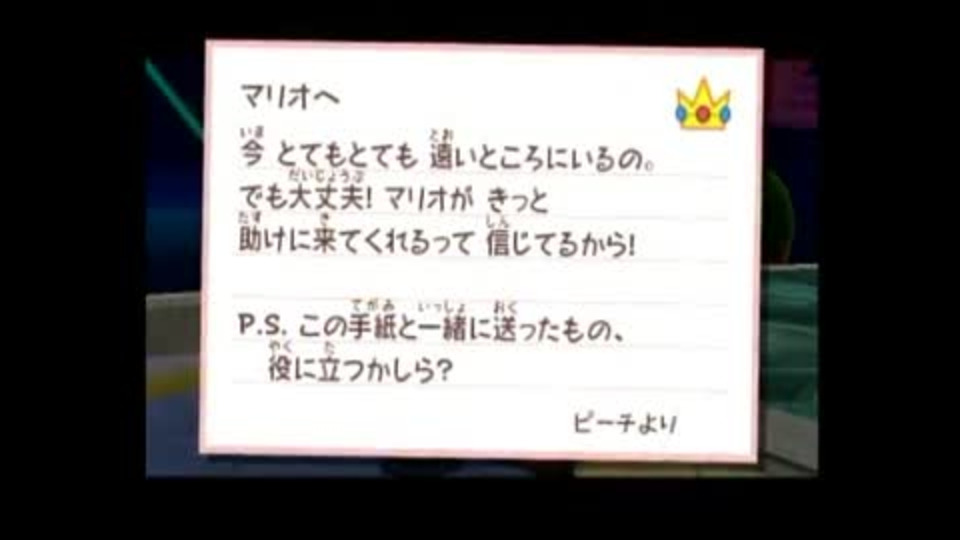 マリオへ
今 とてもとても 遠いところにいるの。
でも大丈夫! マリオが きっと
助けに来てくれるって 信じてるから!
P.S. この手紙と一緒に送ったもの、
役に立つかしら?
ピーチより